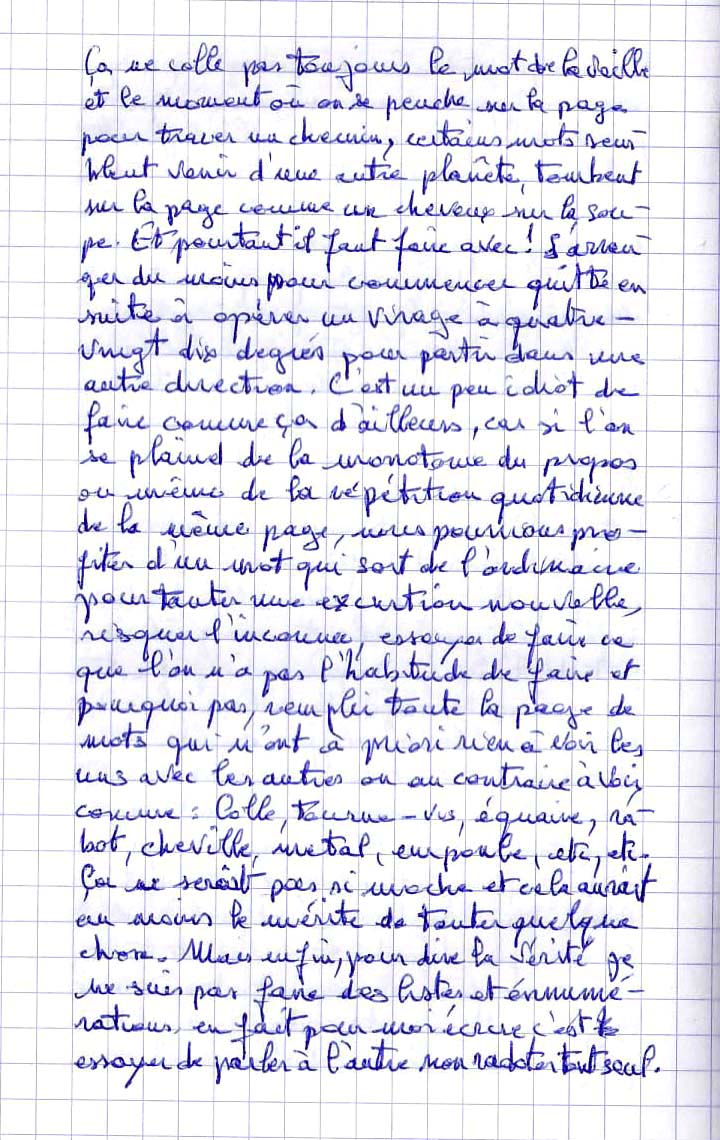 Ça ne colle pas toujours le mot de la veille
et le moment où on se penche sur la page
pour tracer un chemin, certains mots sem-
blent venir d'une autre planète, tombent
sur la page comme un cheveux sur la sou-
pe. Et pourtant il faut faire avec! S'arran-
ger du moins pour commencer quitte en
suite à opérer un virage à quatre-
vingt dix degrés pour partir dans une
autre direction. C'est un peu idiot de
faire comme ça d'ailleurs, car si l'on
se plaind de la monotonie du propos
ou même de la répétition quotidienne
de la même page, nous pourrions pro-
fiter d'un mot qui sort de l'ordinaire
pour tenter une excurtion nouvelle,
risquer l'inconnue, essayer de faire ce
que l'on n'a pas l'habitude de faire et
pourquoi pas, remplir toute la page de
mots qui n'ont à priori rien à voir les
uns avec les autres ou au contraire à voir
comme : Colle, tourne-vis, équaire, ra-
bot, cheville, métal, empoule, etc, etc.
Ça ne serait pas si moche et cela aurait
au moins le mérite de tenter quelque
chose. Mais enfin, pour dire la vérité je
ne suis pas fane des listes et énnumé-
rations, en fait pour moi écrire c'est
essayer de parler à l'autre non radoter tout seul.